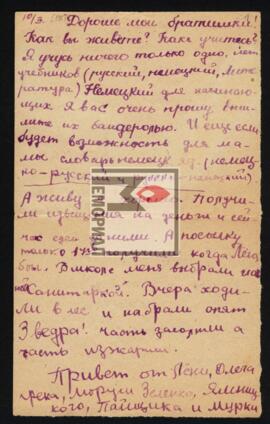 10/3. Дорогие мои братишки!
Как вы живете? Как учитесь?
Я учусь ничего только одно, нет
учебников (русский, немецкий, Лите
ратура) Немецкий для начинаю-
щих. Я вас очень прошу вы
лите их бандеролью. И еще если
будет возможность для ма-
мы словарь немецк. яз. (немец
ко-русский и
А живу Получи-
ли извещения на деньги и сей
час ими. А посылку
только получили когда Лёля
был. В школе меня выбрали
санитаркой. Вчера ходи-
ли в лес и набрали опят
3 ведра! часть засолили а
часть изжарили.
Привет от Лёки, Олега
Маруси Зеленко,
кого, Пайщика и Мурки
МЕМОРИАЛ